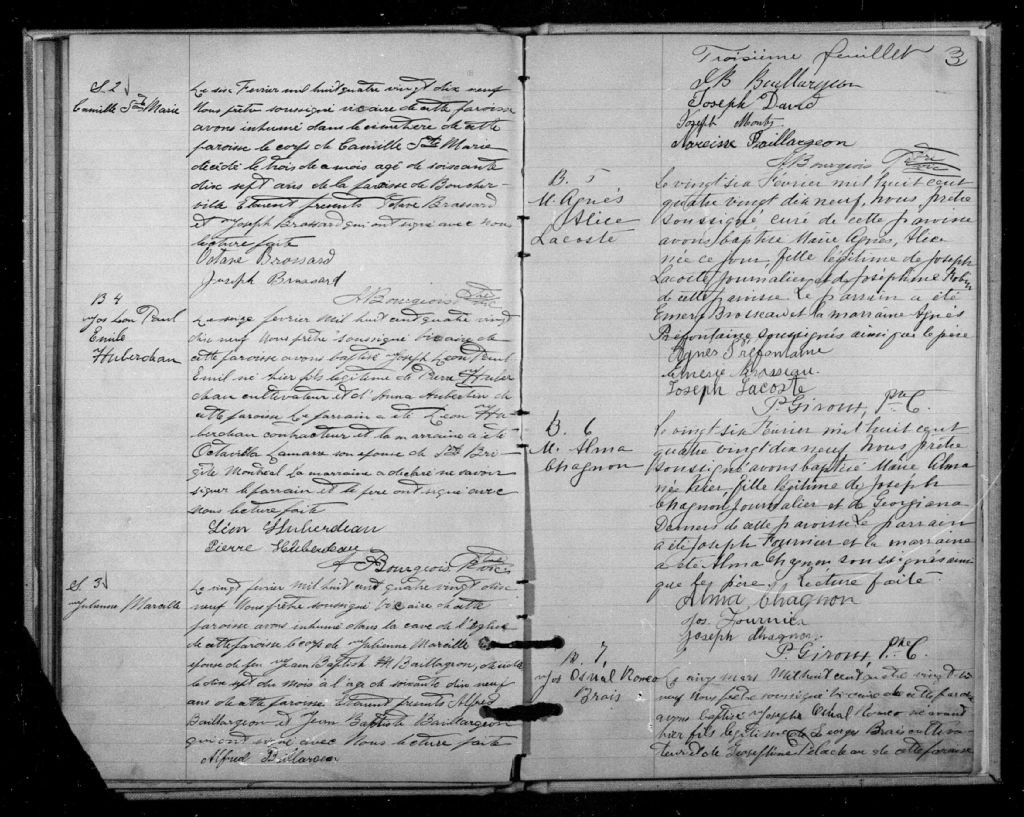 S. 2
Camille Ste Marie
Le six Fevrier mil huit quatre vingt dix neuf
Nous prêtre soussigné vicaire de cette paroisse
avons inhumé dans le cimetiere de cette
paroisse le corps de Camille Ste Marie
décédé le trois de ce mois agé de soixante
dix sept ans de la paroisse de Boucher-
ville Etaient presents Octave Brossard
et Joseph Brossard qui ont signé avec nous
lecture faite
Octave Brossard
Joseph Brossard
A Bourgeois Ptre
Vic
B 4
Jos Leon Paul
Emile
Huberdeau
Le seize fevrier mil huit cent quatre vingt
dix neuf Nous prêtre soussigné vicaire de
cette paroisse avons baptisé Joseph Leon Paul
Emil né hier fils légitime de Pierre Huber
deau cultivateur et d' Anna Aubertin de
cette paroisse Le parrain a été Leon Hu
berdeau contracteur et la marraine a été
Octavie Lamarre son epouse de Ste Bri
gite Montréal La marraine a declaré ne savoir
signer le parrain et le pere ont signé avec
nous lecture faite
Léon Huberdeau
Pierre Huberdeau
A Bourgeois Ptre
Vic
S. 3
Julienne Marcille
Le vingt fevrier mil huit cent quatre vingt dix
neuf Nous prêtre soussigné vicaire de cette
paroisse avons inhumé dans la cave de l'Eglise
de cette paroisse le corps de Julienne Marcille
epouse de feu Jean Baptiste Baillargeon, décédée
le dix sept du mois à l'age de soixante dix neuf
ans de cette paroisse Etaient presents Alfred
Baillargeon et Jean Baptiste Baillargeon
qui ont signé avec Nous lecture faite
Alfred Baillargeon
Troisième feuillet 3
J B Baillargeon
Joseph David
Joseph
Narcisse Baillargeon
A Bourgeois Ptre
Vic
B. 5
M. Agnés
Alice
Lacoste
Le vingt six Février mil huit cent
quatre vingt dix neuf, nous, prêtre
soussigné curé de cette paroisse
avons baptisé Marie Agnes, Alice
née ce jour, fille légitime de Joseph
Lacoste Journalier et de Josephine
de cette paroisse Le parrain a été
Emery Brosseau et la marraine Agnés
Préfontaine soussignés ainsi que le père
Agnes Prefontaine
Emerie Brosseau
Joseph Lacoste
P. Giroux, Ptre C.
B. 6
M. Alma
Chagnon
Le vingt six Fevrier mil huit cent
quatre vingt dix neuf nous prêtre
soussigné avons baptisé Marie Alma
née hier, fille légitime de Joseph
Chagnon journalier et de Georgiana
Demers de cette paroisse Le parrain
a été Joseph Fournier et la marraine
a été Alma Chagnon soussignés ainsi
que le père, lecture faite
Alma Chagnon
Jos Fournier
Joseph Chagnon
P. Giroux, Ptre C.
B. 7
Jos Oswal Romeo
Brais
Le cinq mars Mil huit cent quatre vingt dix
neuf Nous prêtre soussigné vicaire de cette paroisse
avons baptisé Joseph Oswal Romeo né avant
hier fils legitime de Georges Brais cultiva
teur et de Josephine de cette paroisse